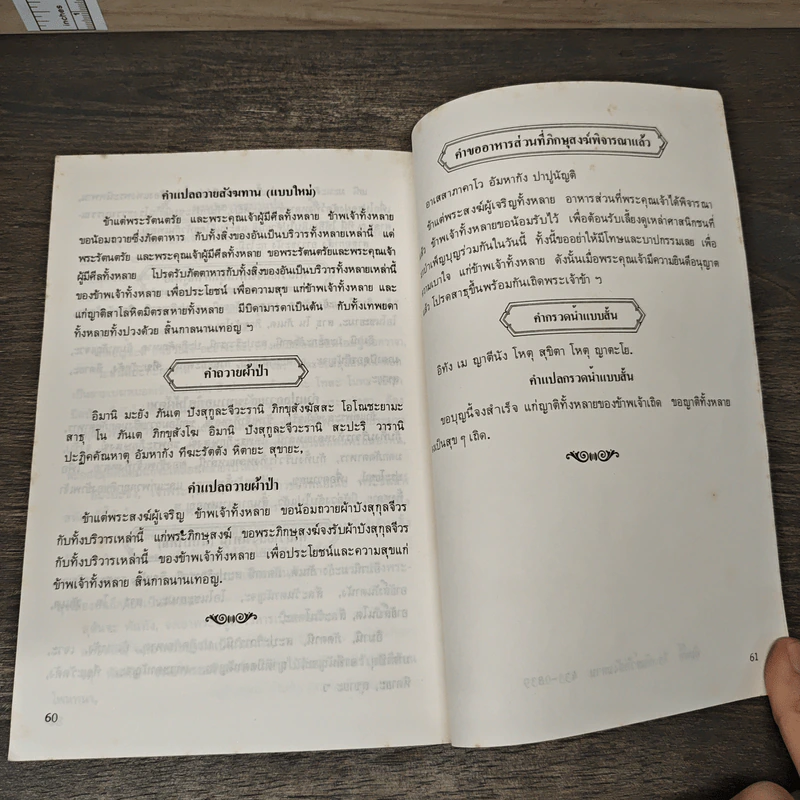 คำแปลถวายสังฆทาน (แบบใหม่)
ข้าแต่พระรัตนตรัย และพระคุณเจ้าผู้มีศีลทั้งหลาย ข้าพเจ้าทั้งหลาย
ขอน้อมถวายซึ่งภัตตาหาร กับทั้งสิ่งของอันเป็นบริวารทั้งหลายเหล่านี้ แด่
พระรัตนตรัย และพระคุณเจ้าผู้มีศีลทั้งหลาย ขอพระรัตนตรัยและพระคุณเจ้า
ผู้มีศีลทั้งหลาย โปรดรับภัตตาหารกับทั้งสิ่งของอันเป็นบริวารทั้งหลายเหล่านี้
ของข้าพเจ้าทั้งหลาย เพื่อประโยชน์ เพื่อความสุข แก่ข้าพเจ้าทั้งหลาย และ
แก่ญาติสาโลหิตมิตรสหายทั้งหลาย มีบิดามารดาเป็นต้น กับทั้งเทพยดา
ทั้งหลายทั้งปวงด้วย สิ้นกาลนานเทอญ ฯ
คำถวายผ้าป่า
อิมานิ มะยัง ภันเต ปังสุกูละจีวะรานิ ภิกขุสังฆัสสะ โอโณชะยามะ
สาธุ โน ภันเต ภิกขุสังโฆ อิมานิ ปังสุกูละจีวะรานิ สะปะริ วารานิ
ปะฏิคคัณหาตุ อัมหากัง ทีฆะรัตตัง หิตายะ สุขายะ,
คำแปลถวายผ้าป่า
ข้าแต่พระสงฆ์ผู้เจริญ ข้าพเจ้าทั้งหลาย ขอน้อมถวายผ้าบังสุกุลจีวร
กับทั้งบริวารเหล่านี้ แก่พระภิกษุสงฆ์ ขอพระภิกษุสงฆ์จงรับผ้าบังสุกุลจีวร
กับทั้งบริวารเหล่านี้ ของข้าพเจ้าทั้งหลาย เพื่อประโยชน์และความสุขแก่
ข้าพเจ้าทั้งหลาย สิ้นกาลนานเทอญ.
60
คำขออาหารส่วนที่ภิกษุสงฆ์พิจารณาแล้ว
อาเสสาภาคาโว อัมหากัง ปาปูนัญติ
ข้าแต่พระสงฆ์ผู้เจริญทั้งหลาย อาหารส่วนที่พระคุณเจ้าได้พิจารณา
แล้ว ข้าพเจ้าทั้งหลายขอน้อมรับไว้ เพื่อต้อนรับเลี้ยงดูเหล่าศาสนิกชนที่
บำเพ็ญบุญร่วมกันในวันนี้ ทั้งนี้ขออย่าให้มีโทษและบาปกรรมเลย เพื่อ
ความเบาใจ แก่ข้าพเจ้าทั้งหลาย ดังนั้นเมื่อพระคุณเจ้ามีความยินดีอนุญาต
แล้ว โปรดสาธุขึ้นพร้อมกันเถิดพระเจ้าข้า ฯ
คำกรวดน้ำแบบสั้น
อิทัง เม ญาตีนัง โหตุ สุขิตา โหตุ ญาตะโย.
คำแปลกรวดน้ำแบบสั้น
ขอบุญนี้จงสำเร็จ แก่ญาติทั้งหลายของข้าพเจ้าเถิด ขอญาติทั้งหลาย
เป็นสุข ๆ เถิด.
61
inches
1